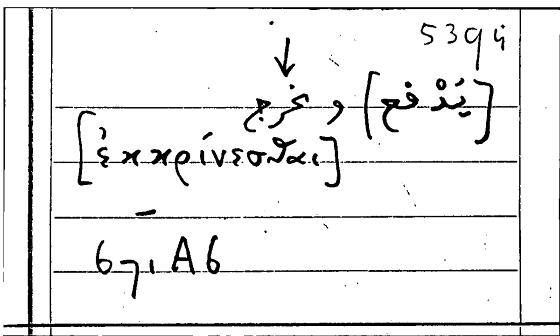 ↓
[يُدْفع] و يخرج
[ἐκκρίνεσθαι]
671 A6